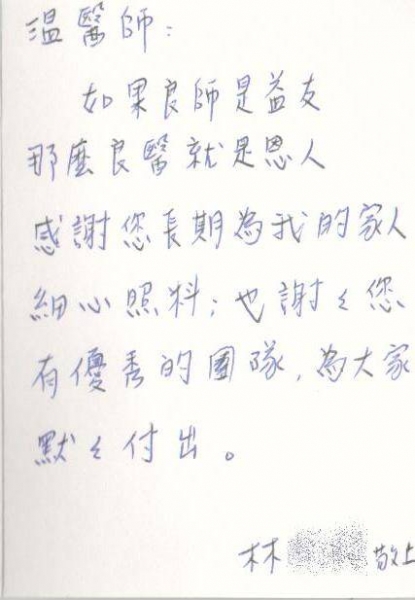 溫醫師：
如果良師是益友
那麼良醫就是恩人
感謝您長期為我的家人
細心照料；也謝々您
有優秀的團隊，為大家
默々付出。
林 敬上